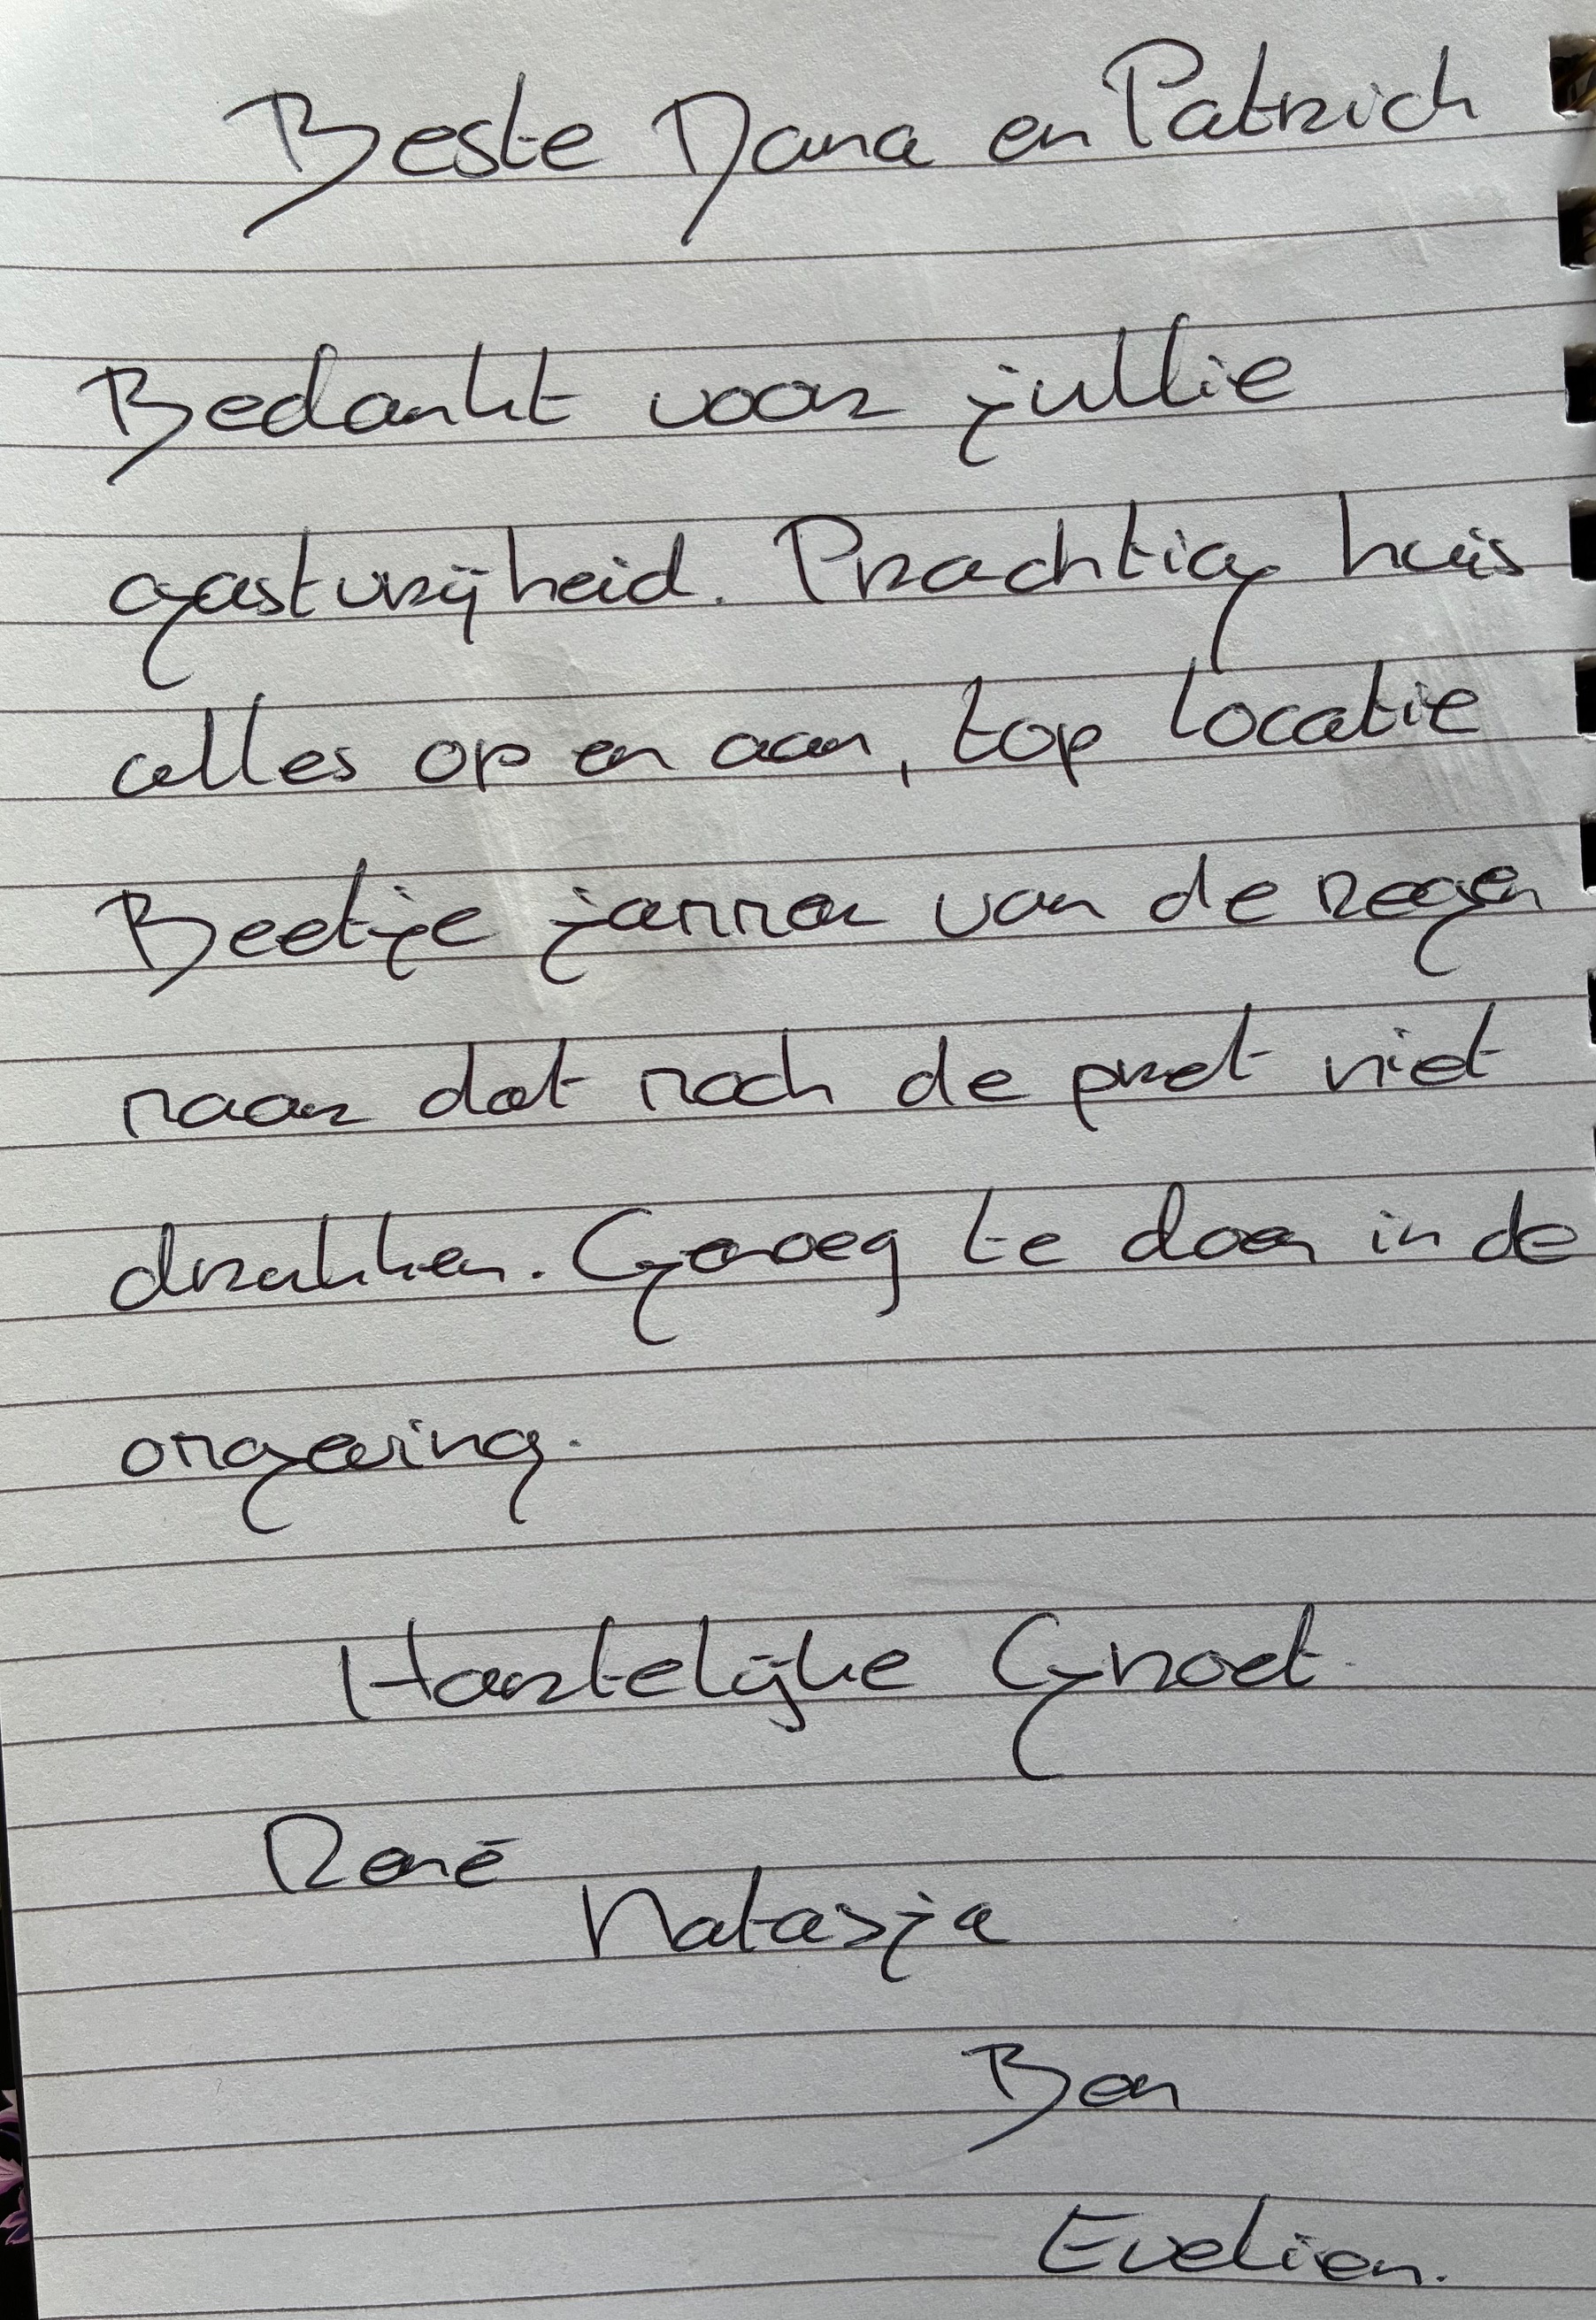 Beste Dana en Patrick
Bedankt voor jullie
gastvrijheid. Prachtig huis
alles op en aan, top locatie
Beetje jammer van de regen
maar dat mocht de pret niet
drukken. Genoeg te doen in de
omgeving.
Hartelijke Groet.
René
Natasja
Ben
Evelien.